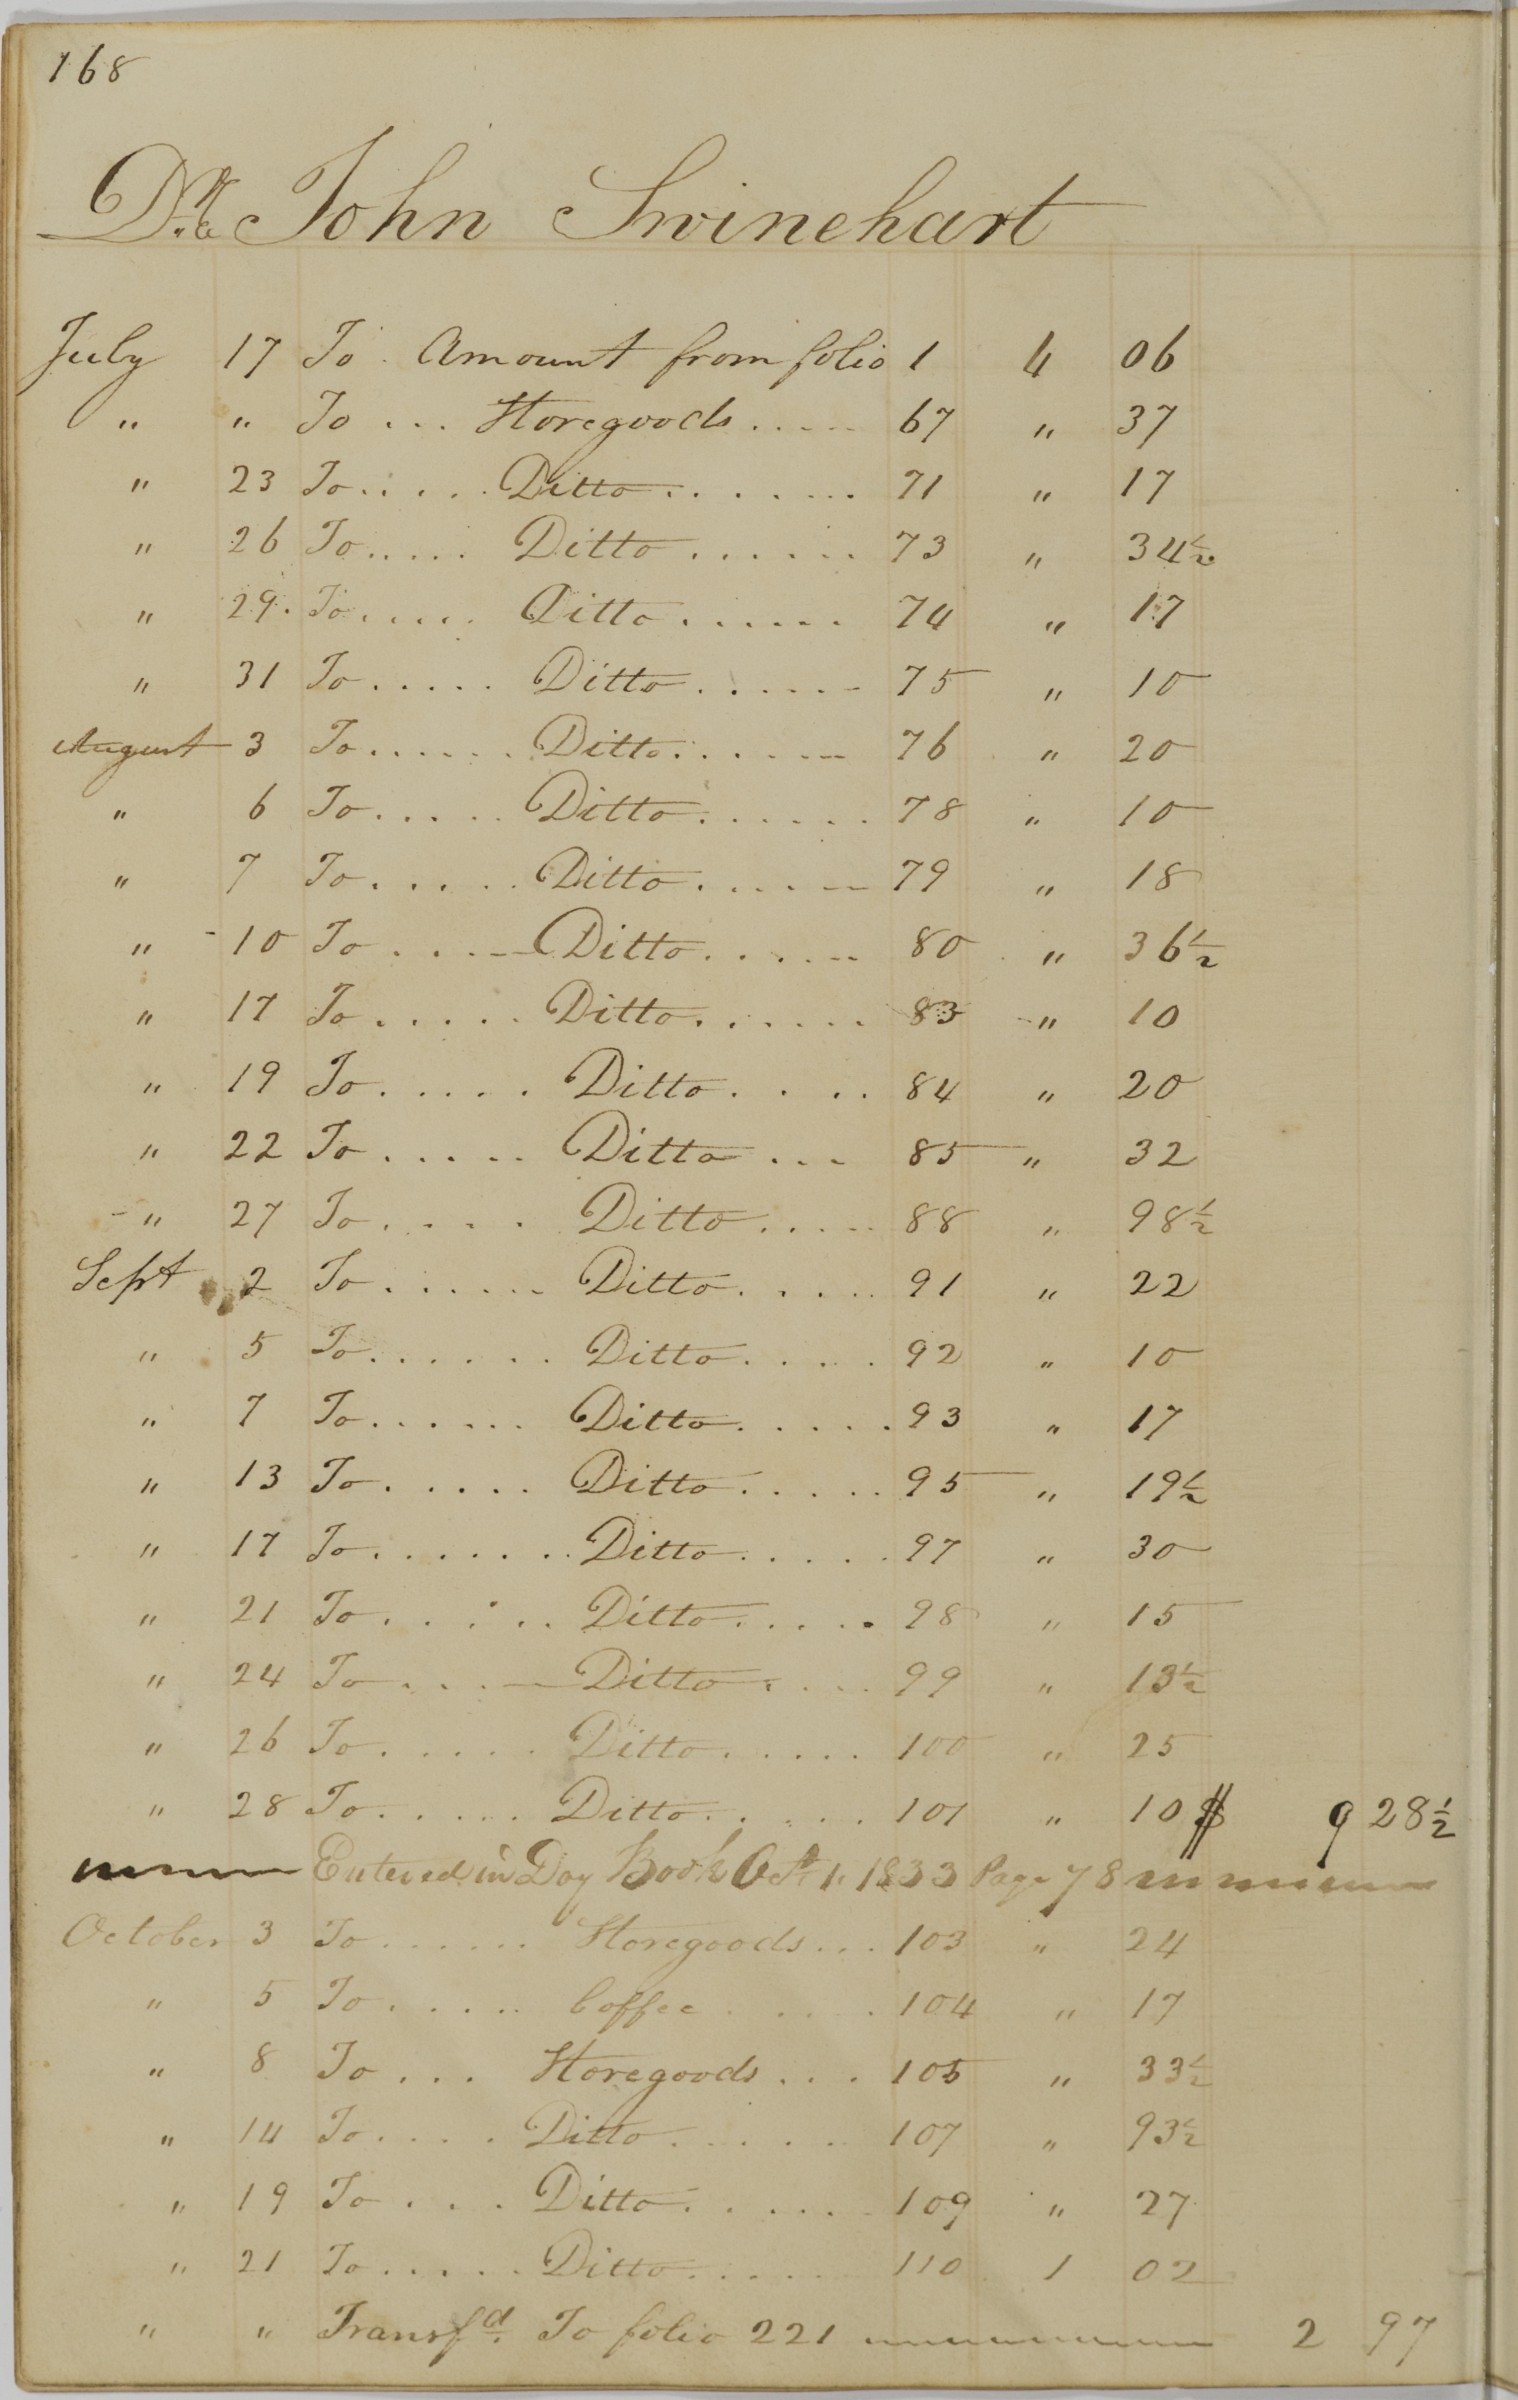 168
Dr. John Swinehart
July 17 To . Amount from folio 1 4 06
" " To ... Storegoods ..... 67 " 37
" 23 To ..... Ditto ....... 71 " 17
" 26 To ..... Ditto ...... 73 " 34½
" 29. To ..... Ditto ...... 74 " 17
" 31 To ..... Ditto ...... 75 " 10
August 3 To ...... Ditto ...... 76 " 20
" 6 To ..... Ditto ...... 78 " 10
" 7 To ..... Ditto ...... 79 " 18
" 10 To .... Ditto ...... 80 " 36½
" 17 To ..... Ditto ...... 83 " 10
" 19 To ..... Ditto .... 84 " 20
" 22 To ..... Ditto ... 85 " 32
" 27 To .... Ditto ..... 88 " 98½
Sept 2 To ...... Ditto ..... 91 " 22
" 5 To ...... Ditto .... 92 " 10
" 7 To ...... Ditto ..... 93 " 17
" 13 To ..... Ditto ..... 95 " 19½
" 17 To ....... Ditto ..... 97 " 30
" 21 To ..... Ditto ..... 98 " 15
" 24 To .... Ditto .... 99 " 13½
" 26 To ..... Ditto ..... 100 " 25
" 28 To ..... Ditto ..... 101 " 10 $ 9 28½
Entered in Day Book Oct. 1. 1833 Page 78
October 3 To ...... Storegoods ... 103 " 24
" 5 To ..... Coffee .... 104 " 17
" 8 To ... Storegoods ... 105 " 33½
" 14 To .... Ditto ..... 107 " 93½
" 19 To ... Ditto ..... 109 " 27
" 21 To ..... Ditto ..... 110 1 02
" " Transfd. To folio 221 2 97